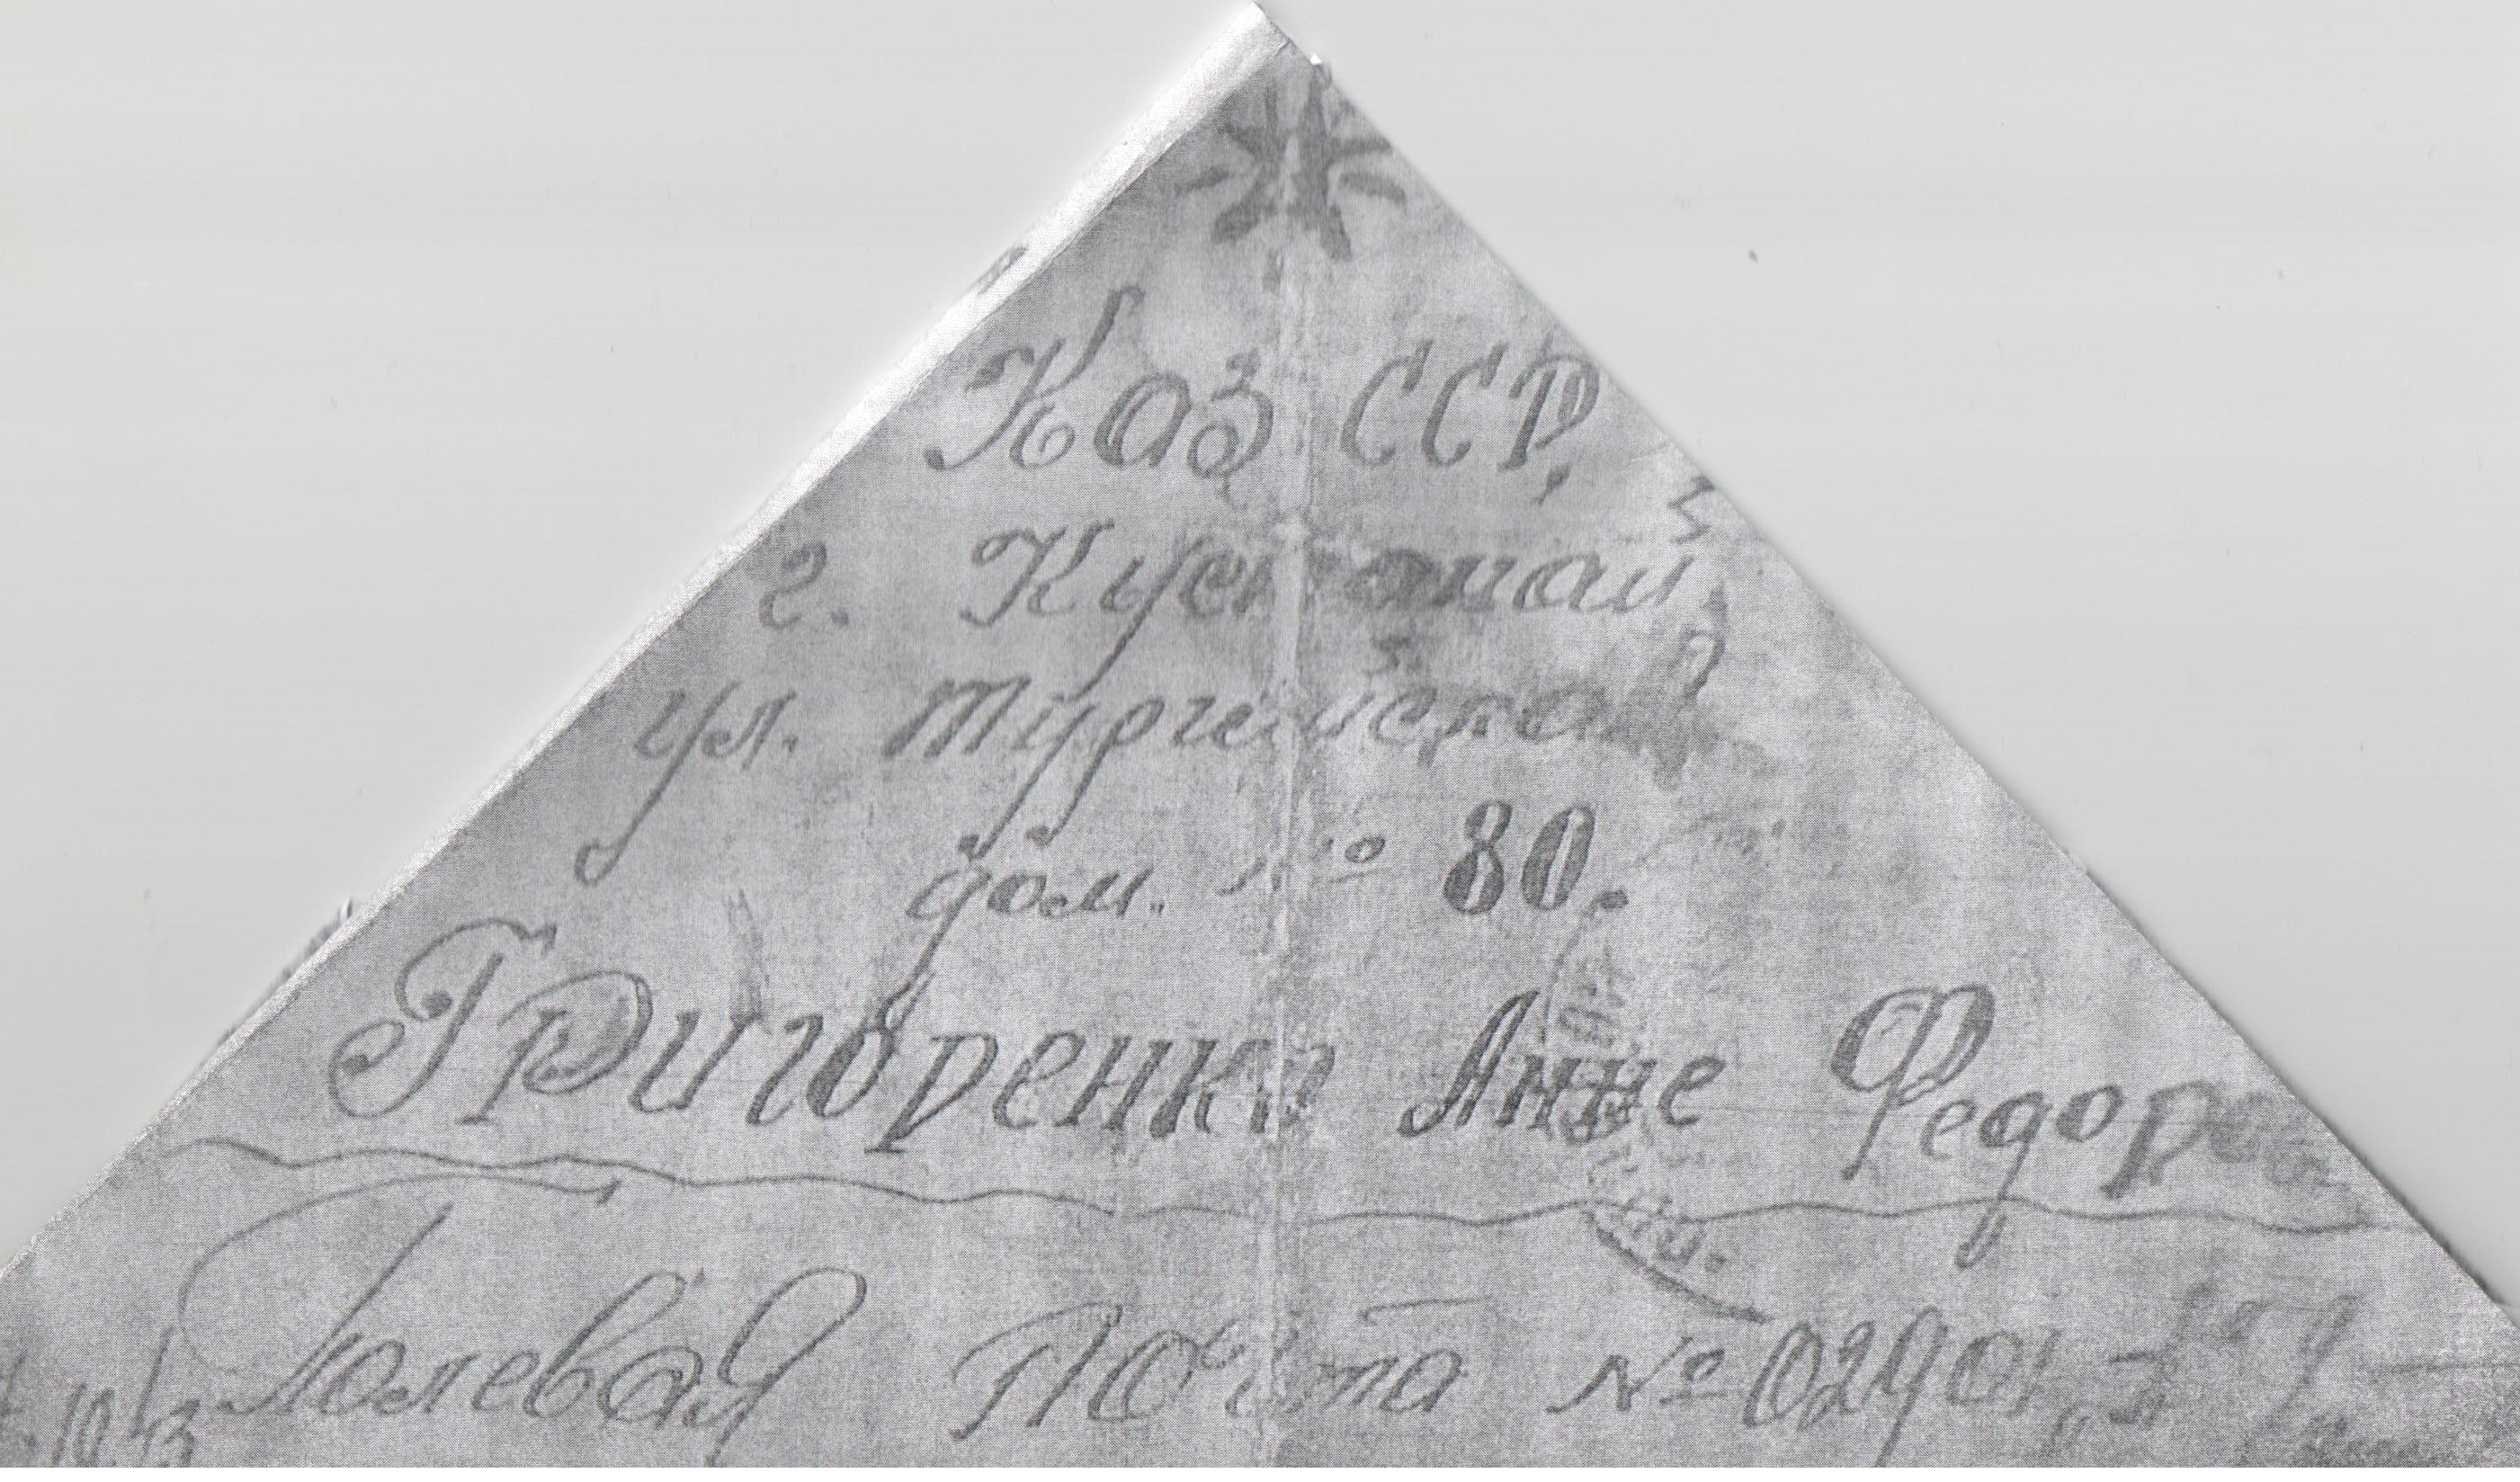 Каз ССР,
г. Кустанай,
ул. Тургайская
дом. № 80.
Григоренко Анне Федоровне
Полевая Почта №